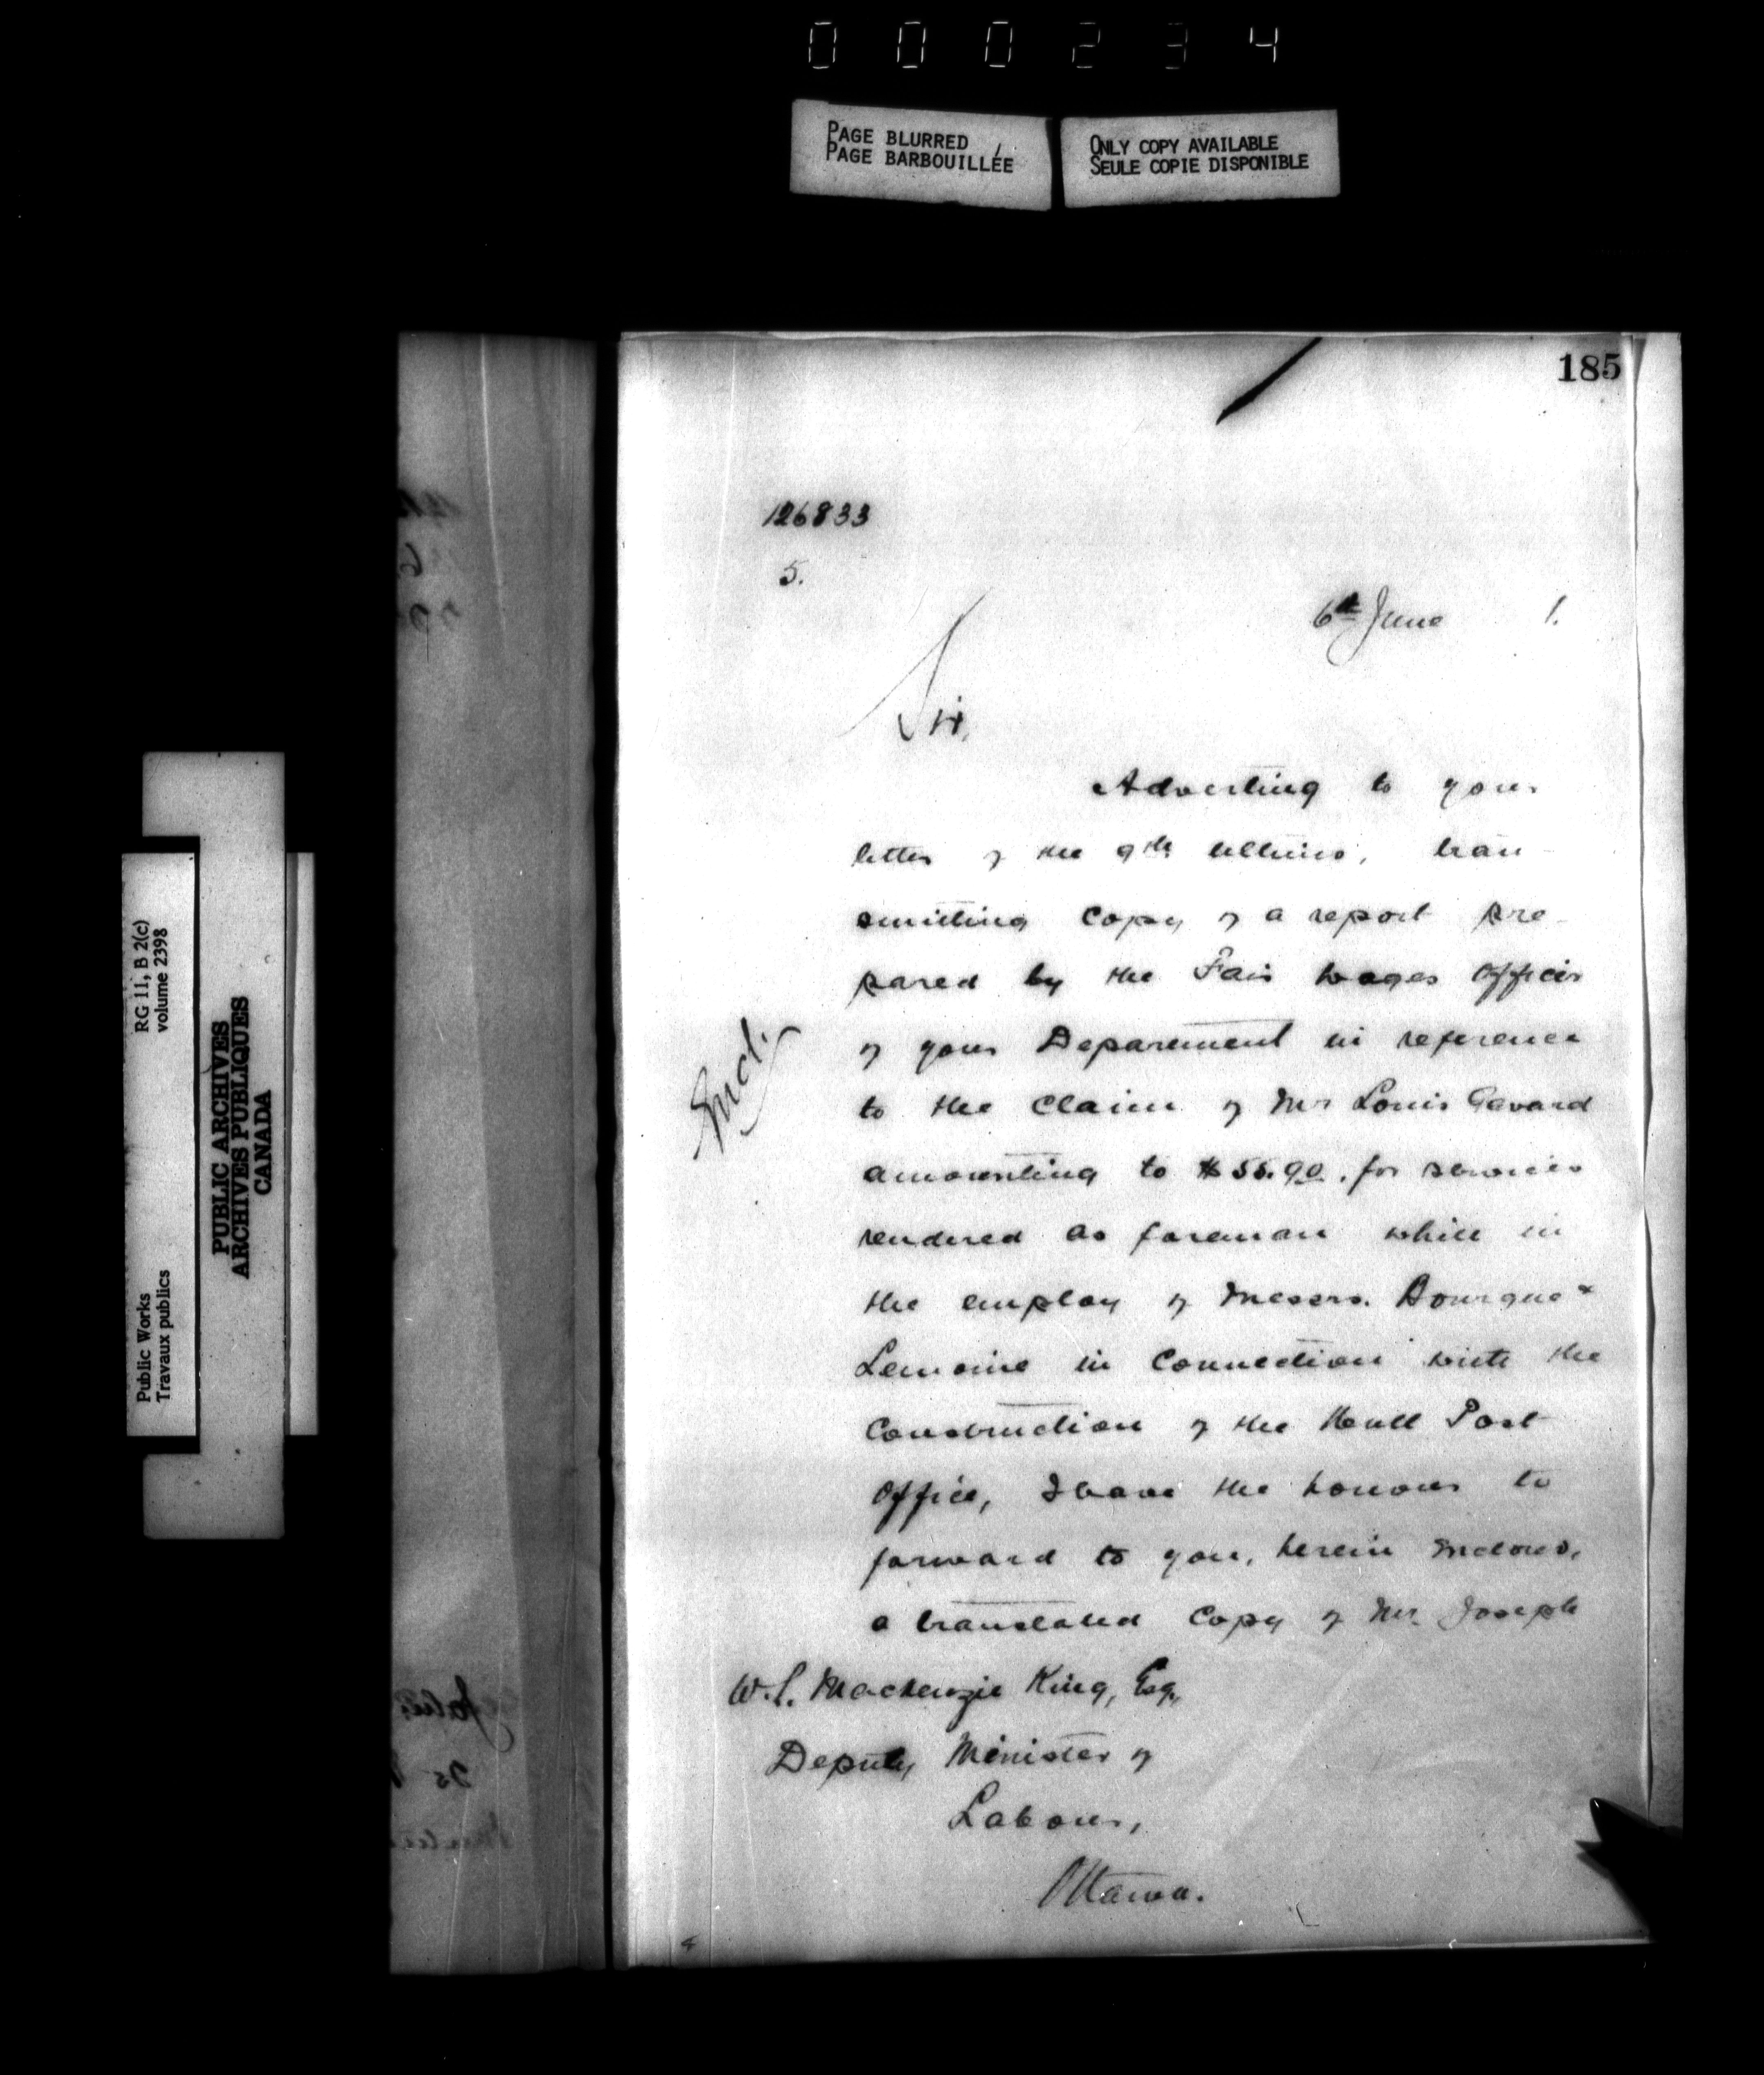 000234
PAGE BLURRED
PAGE BARBOUILLÉE
ONLY COPY AVAILABLE
SEULE COPIE DISPONIBLE
185
126833
5.
6th June 1.
Sir,
Adverting to your
letter of the 9th ultimo, tran-
smitting Copy of a report pre-
pared by the Fair Wages Officer
of your Department in reference
Encl.
to the Claim of Mr Louis Gavard
amounting to $55.90. for services
rendered as foreman while in
the employ of Messrs. Bourque &
Lemoine in Connection with the
Construction of the Hull Post
Office, I have the honour to
forward to you, herein enclosed,
a translated Copy of Mr. Joseph
W. L. Mackenzie King, Esq,
Deputy Minister of
Labour,
Ottawa.
RG 11, B 2(c)
volume 2398
Public Works
Travaux publics
PUBLIC ARCHIVES
ARCHIVES PUBLIQUES
CANADA